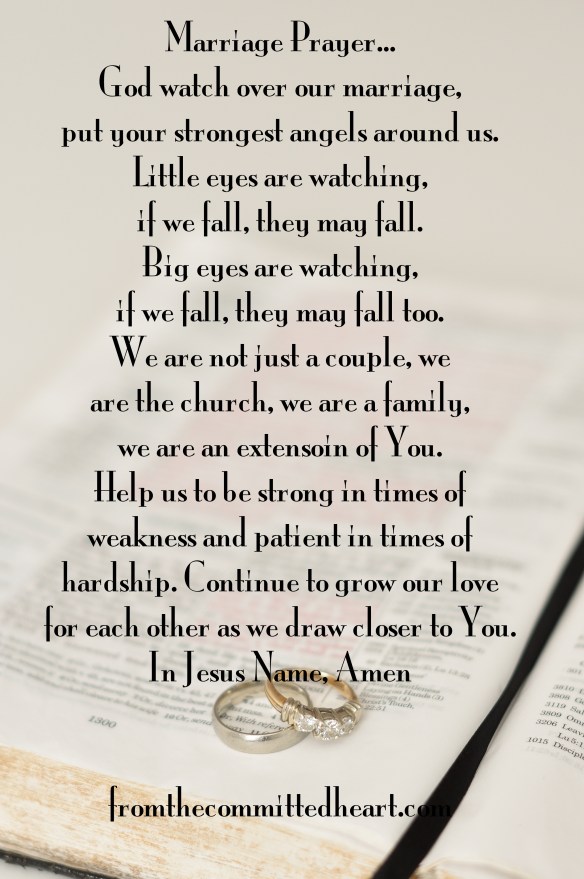 Marriage Prayer...
God watch over our marriage,
put your strongest angels around us.
Little eyes are watching,
if we fall, they may fall.
Big eyes are watching,
if we fall, they may fall too.
We are not just a couple, we
are the church, we are a family,
we are an extensoin of You.
Help us to be strong in times of
weakness and patient in times of
hardship. Continue to grow our love
for each other as we draw closer to You.
In Jesus Name, Amen
1300
fromthecommittedheart.com